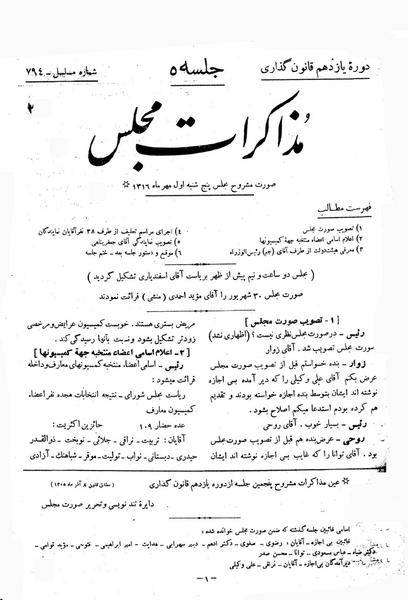 دورهٔ یازدهم قانون گذاری
جلسه ۵
شماره مسلسل - ۷۹۴
مذاکرات مجلس
صورت مشروح مجلس پنج شنبه اول مهر ماه ۱۳۱۶ ※
فهرست مطالب
۱) تصویب صورت مجلس
۲) اعلام اسامی اعضاء منتخبه جهة کمیسیونها
۳) معرفی هیئت دولت از طرف آقای (جم) رئیس الوزراء
۴) اجرای مراسم تحلیف از طرف ۳۸ نفر آقایان نمایندگان
۵) تصویب نمایندگی آقای جعفر بناهی
۶) موقع و دستور جلسه بعد - ختم جلسه
(مجلس دو ساعت و نیم پیش از ظهر بریاست آقای اسفندیاری تشکیل گردید)
صورت مجلس ۳۰ شهریور را آقای مؤید احمدی (منشی) قرائت نمودند
[۱ - تصویب صورت مجلس]
رئیس - در صورت مجلس نظری نیست؟ (اظهاری نشد)
صورت مجلس تصویب شد . آقای زوار
زوار - بنده خواستم قبل از تصویب صورت مجلس
عرض بکنم آقای علی وکیلی را که دیر آمده بی اجازه
نوشته اند ایشان بتوسط بنده اجازه خواسته بودند و تقدیم
هم کرده بودم استدعا میکنم اصلاح بشود .
رئیس - بسیار خوب . آقای روحی
روحی - عرض بنده هم قبل از تصویب صورت مجلس
بود . آقای توانا را که غایب بی اجازه نوشته اند ایشان
مریض بستری هستند . خوبست کمیسیون عرایض و مرخصی
زودتر تشکیل بشود و نسبت بآنها رسیدگی کند .
[۲ - اعلام اسامی اعضاء منتخبه جهة کمیسیونها]
رئیس - اسامی اعضاء منتخبه کمیسیونهای معارف و داخله
قرائت میشود :
ریاست مجلس شورای ملی - نتیجه انتخابات هجده نفر اعضاء
کمیسیون معارف
عده حضار ۱۰۹ حائزین اکثریت :
آقایان : تربیت - نراقی - جلائی - نوبخت - ذوالقدر
حیدری - دبستانی - نواب - تولیت - موقر - شاهنك - آزادی
※ عین مذاکرات مشروح پنجمین جلسه از دوره یازدهم قانون گذاری
(مطابق قانون ۸ آذر ماه ۱۳۰۵)
دایرهٔ تند نویسی و تحریر صورت مجلس
اسامی غائبین جلسه گذشته که ضمن صورت مجلس خوانده شده :
غائبین بی اجازه - آقایان : رضوی - صفوی - دکتر ادهم - دبیر سهرابی - هدایت - امیر ابراهیمی - - مؤید قوامی -
دکتر ضیاء - عباس مسعودی - توانا - محسن صدر
دیر آمدگان بی اجازه - آقایان - نراقی - علی وکیلی
- ۱ -